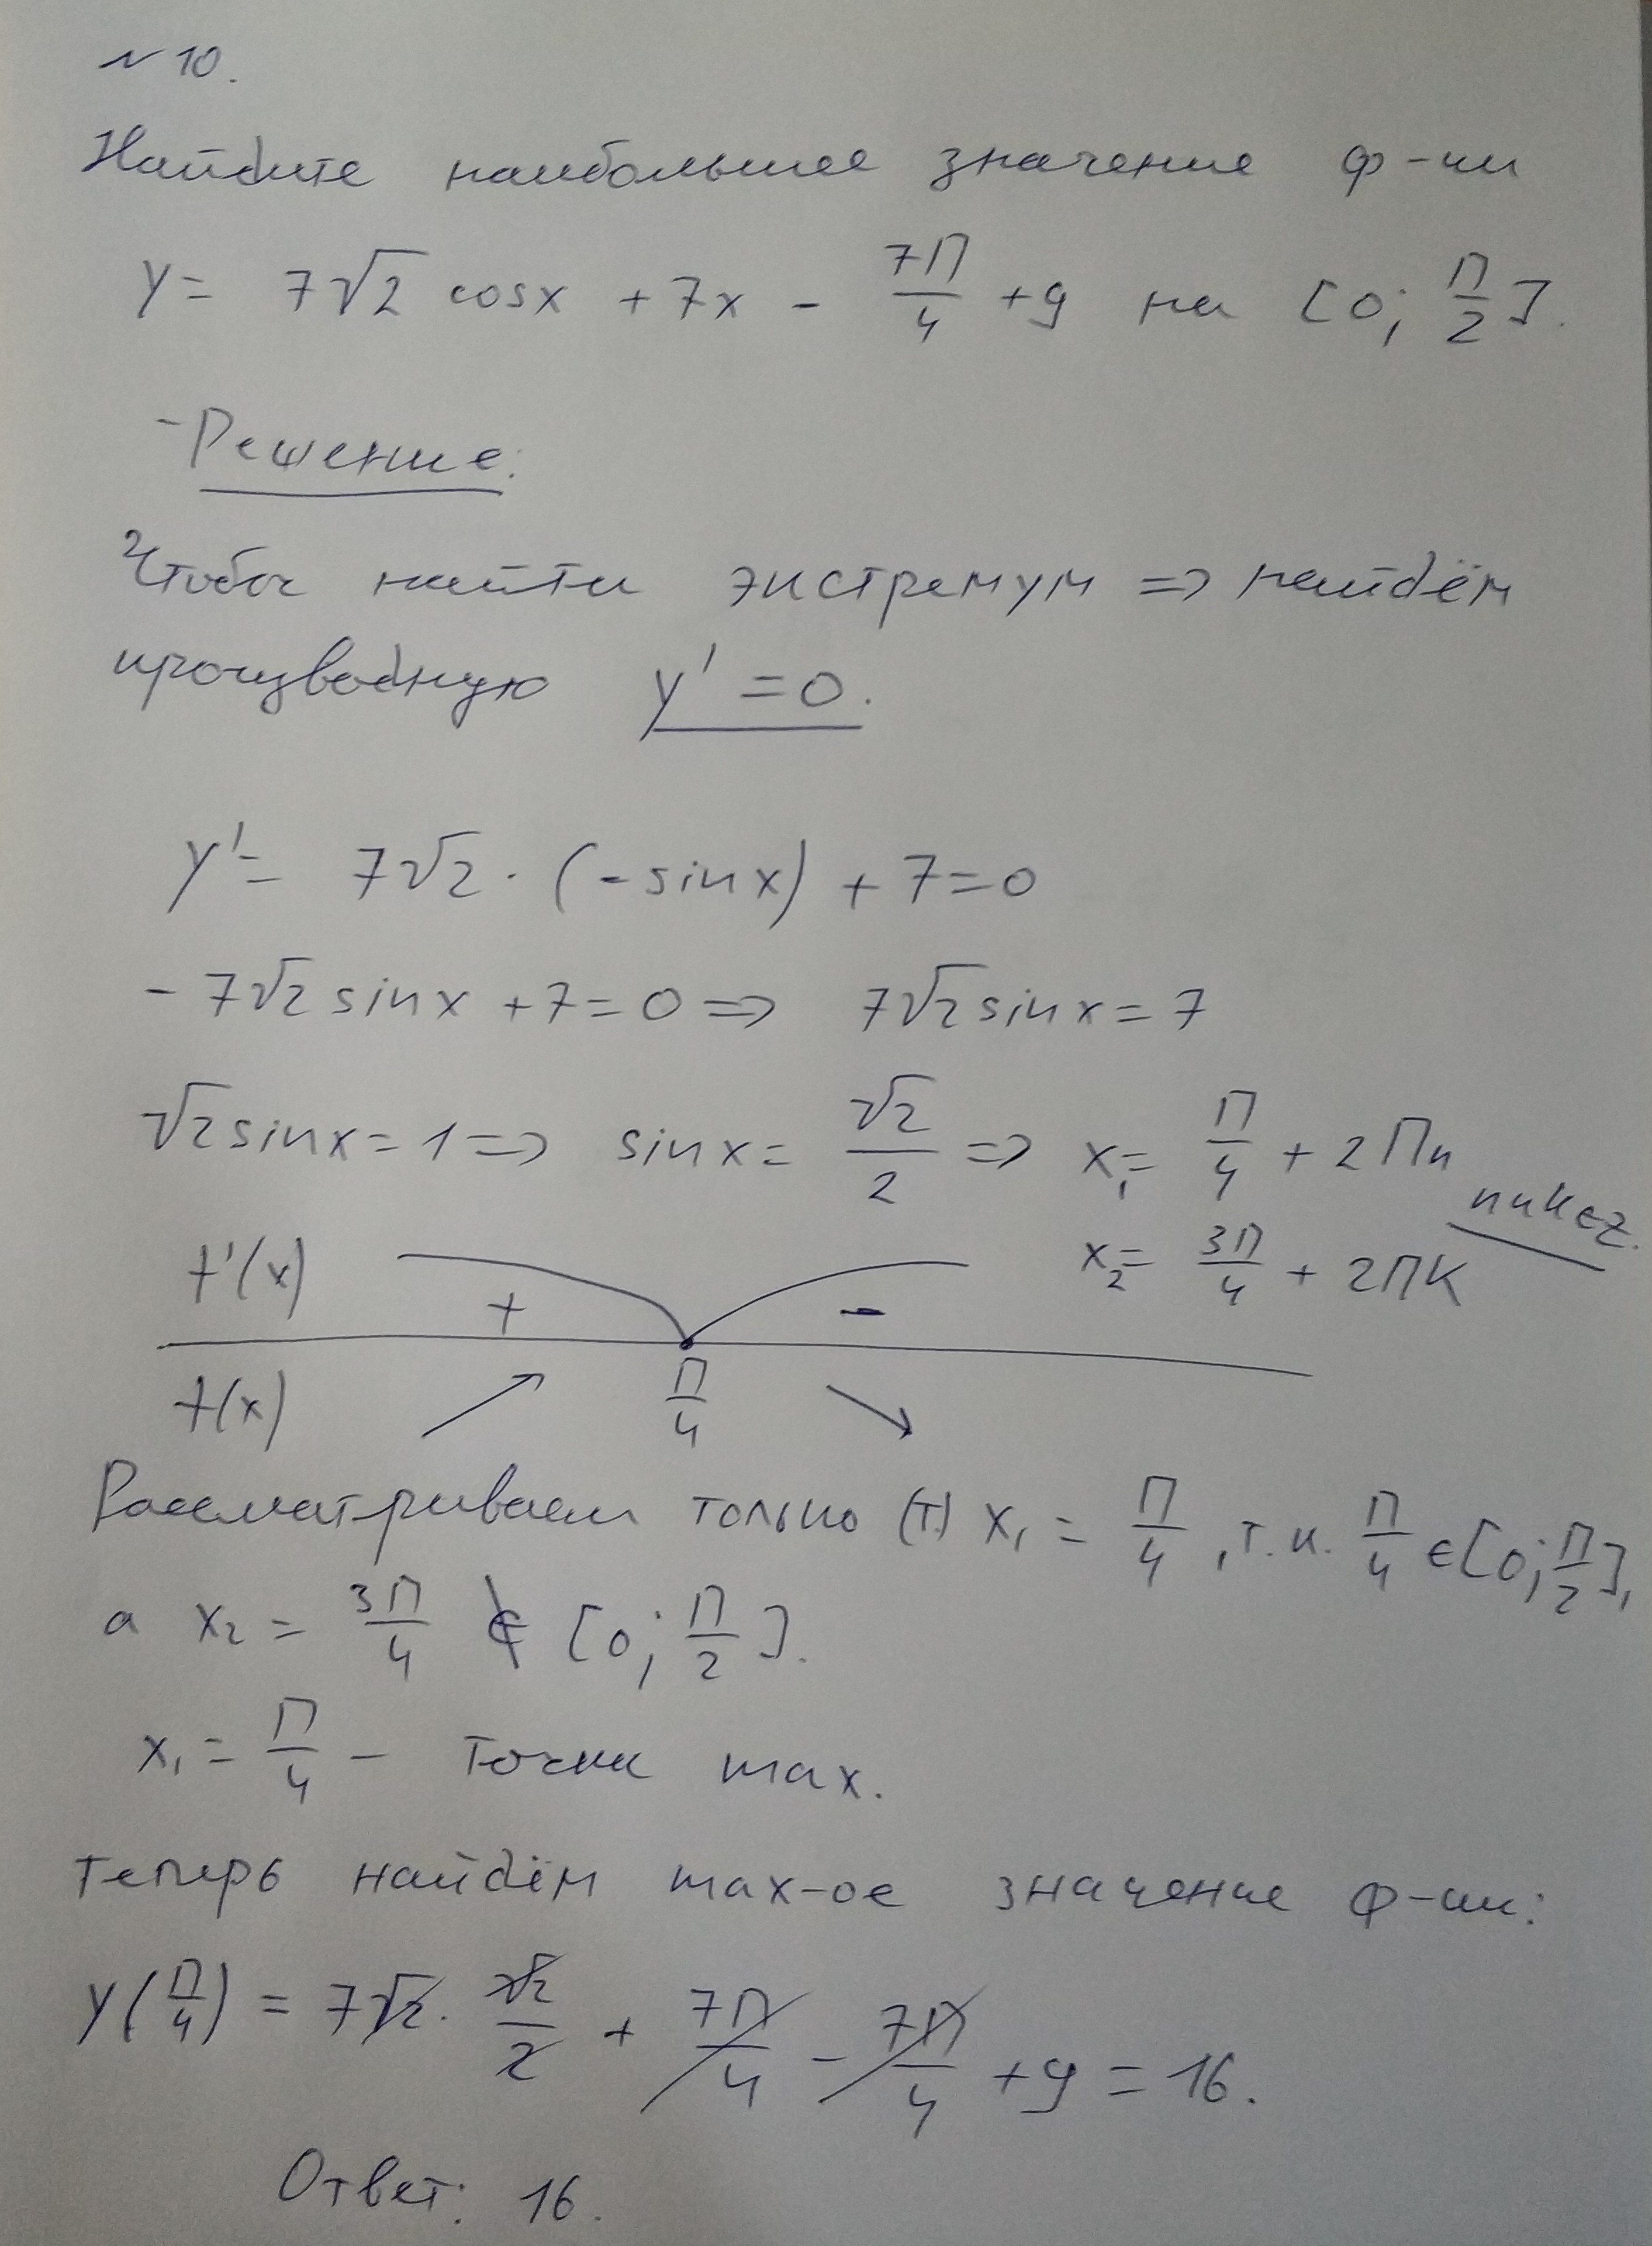 № 10.
Найдите наибольшее значение ф-ии
y = 7√2 cosx + 7x - 7П/4 + 9 на [0; П/2].
Решение:
Чтобы найти экстремум => найдём
производную y' = 0.
y' = 7√2 · (-sinx) + 7 = 0
- 7√2 sinx + 7 = 0 => 7√2 sinx = 7
√2 sinx = 1 => sinx = √2/2 => x₁ = П/4 + 2Пn
x₂ = 3П/4 + 2Пk
n и k ∈ Z.
f'(x) + -
П/4
f(x) ↗ ↘
Рассматриваем только (т) x₁ = П/4, т.к. П/4 ∈ [0; П/2],
а x₂ = 3П/4 ∉ [0; П/2].
x₁ = П/4 - точка max.
Теперь найдём max-ое значение ф-ии:
y(П/4) = 7√2 · √2/2 + 7П/4 - 7П/4 + 9 = 16.
Ответ: 16.